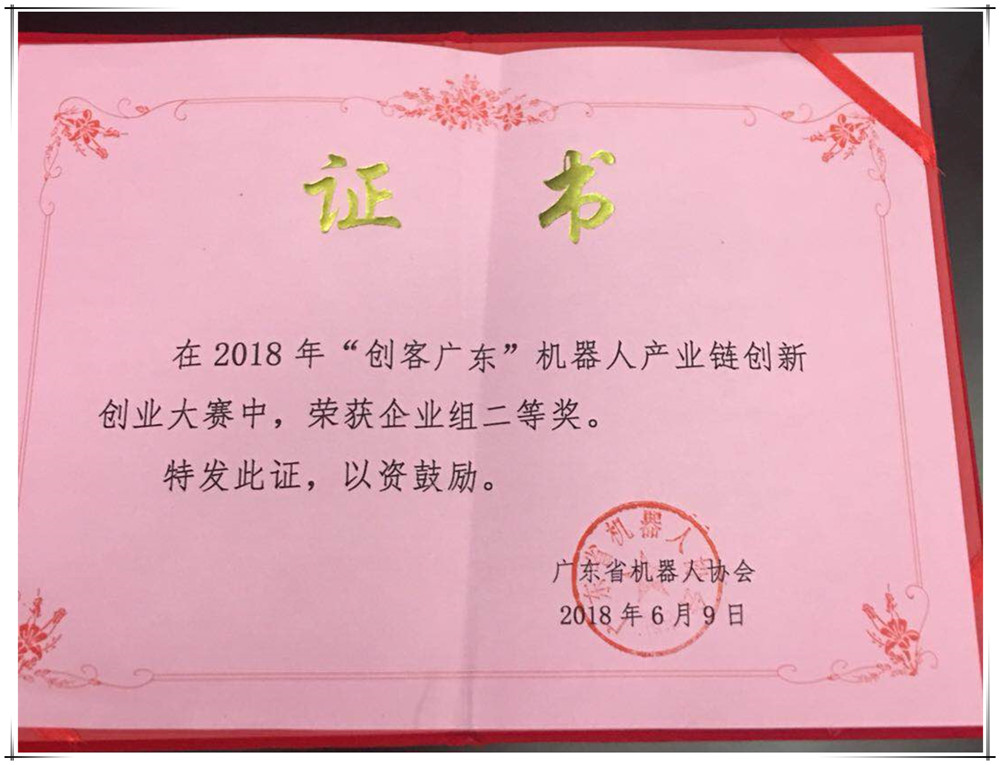 证书
在2018年“创客广东”机器人产业链创新
创业大赛中，荣获企业组二等奖。
特发此证，以资鼓励。
广东省机器人协会
2018年6月9日